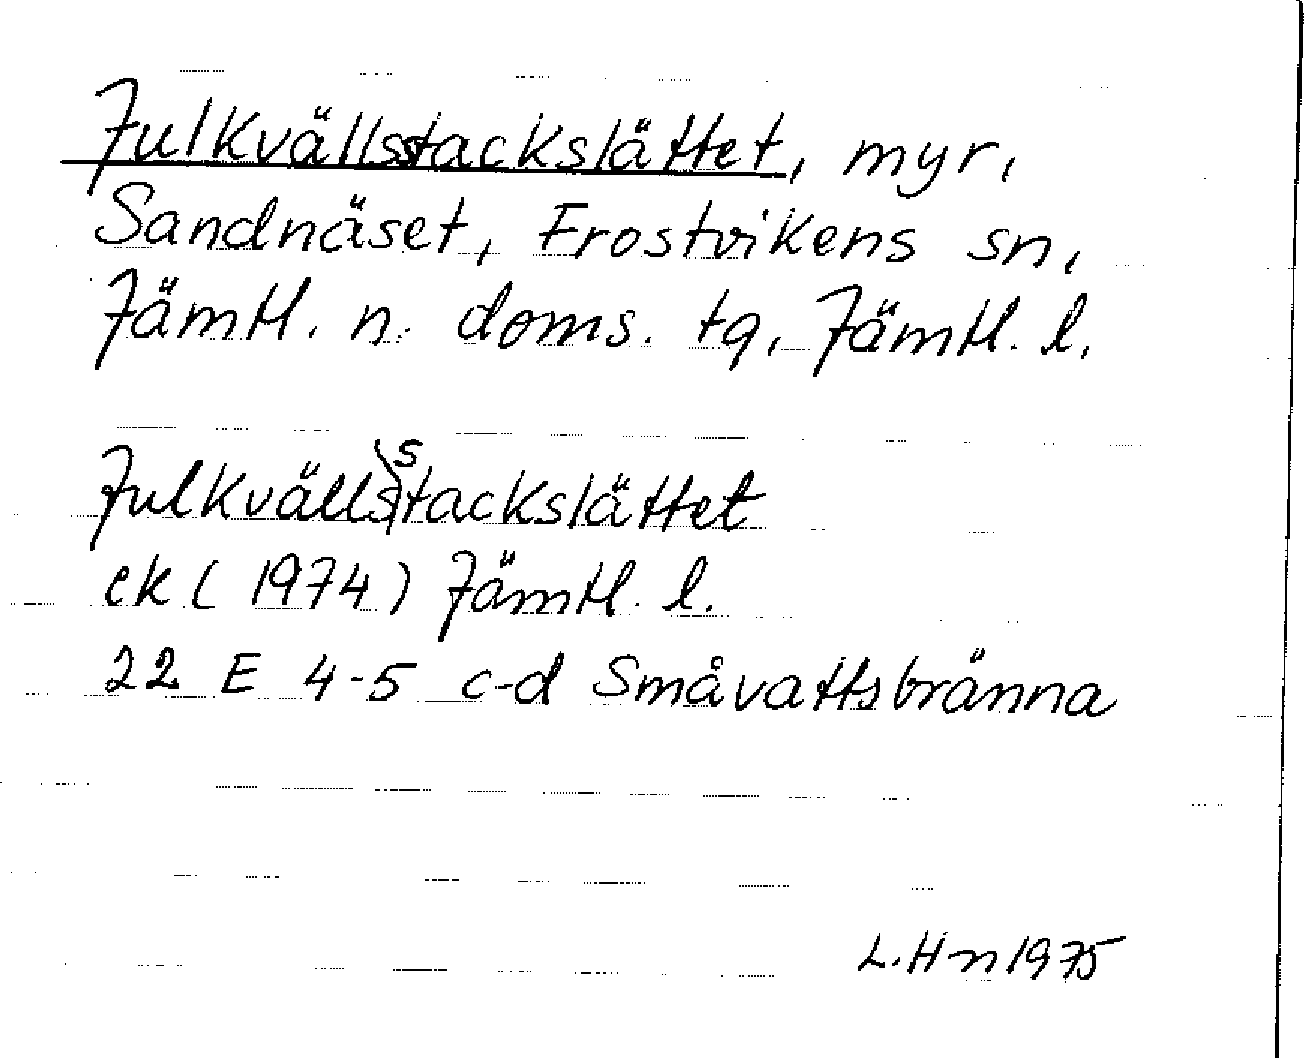 Julkvällsstackslättet, myr,
Sandnäset, Frostvikens sn,
Jämtl. n. doms. tq, Jämtl. l.
Julkvällsstackslättet
ek (1974) Jämtl. l.
22 E 4-5 c-d Småvattsbränna
L. Hn 1975